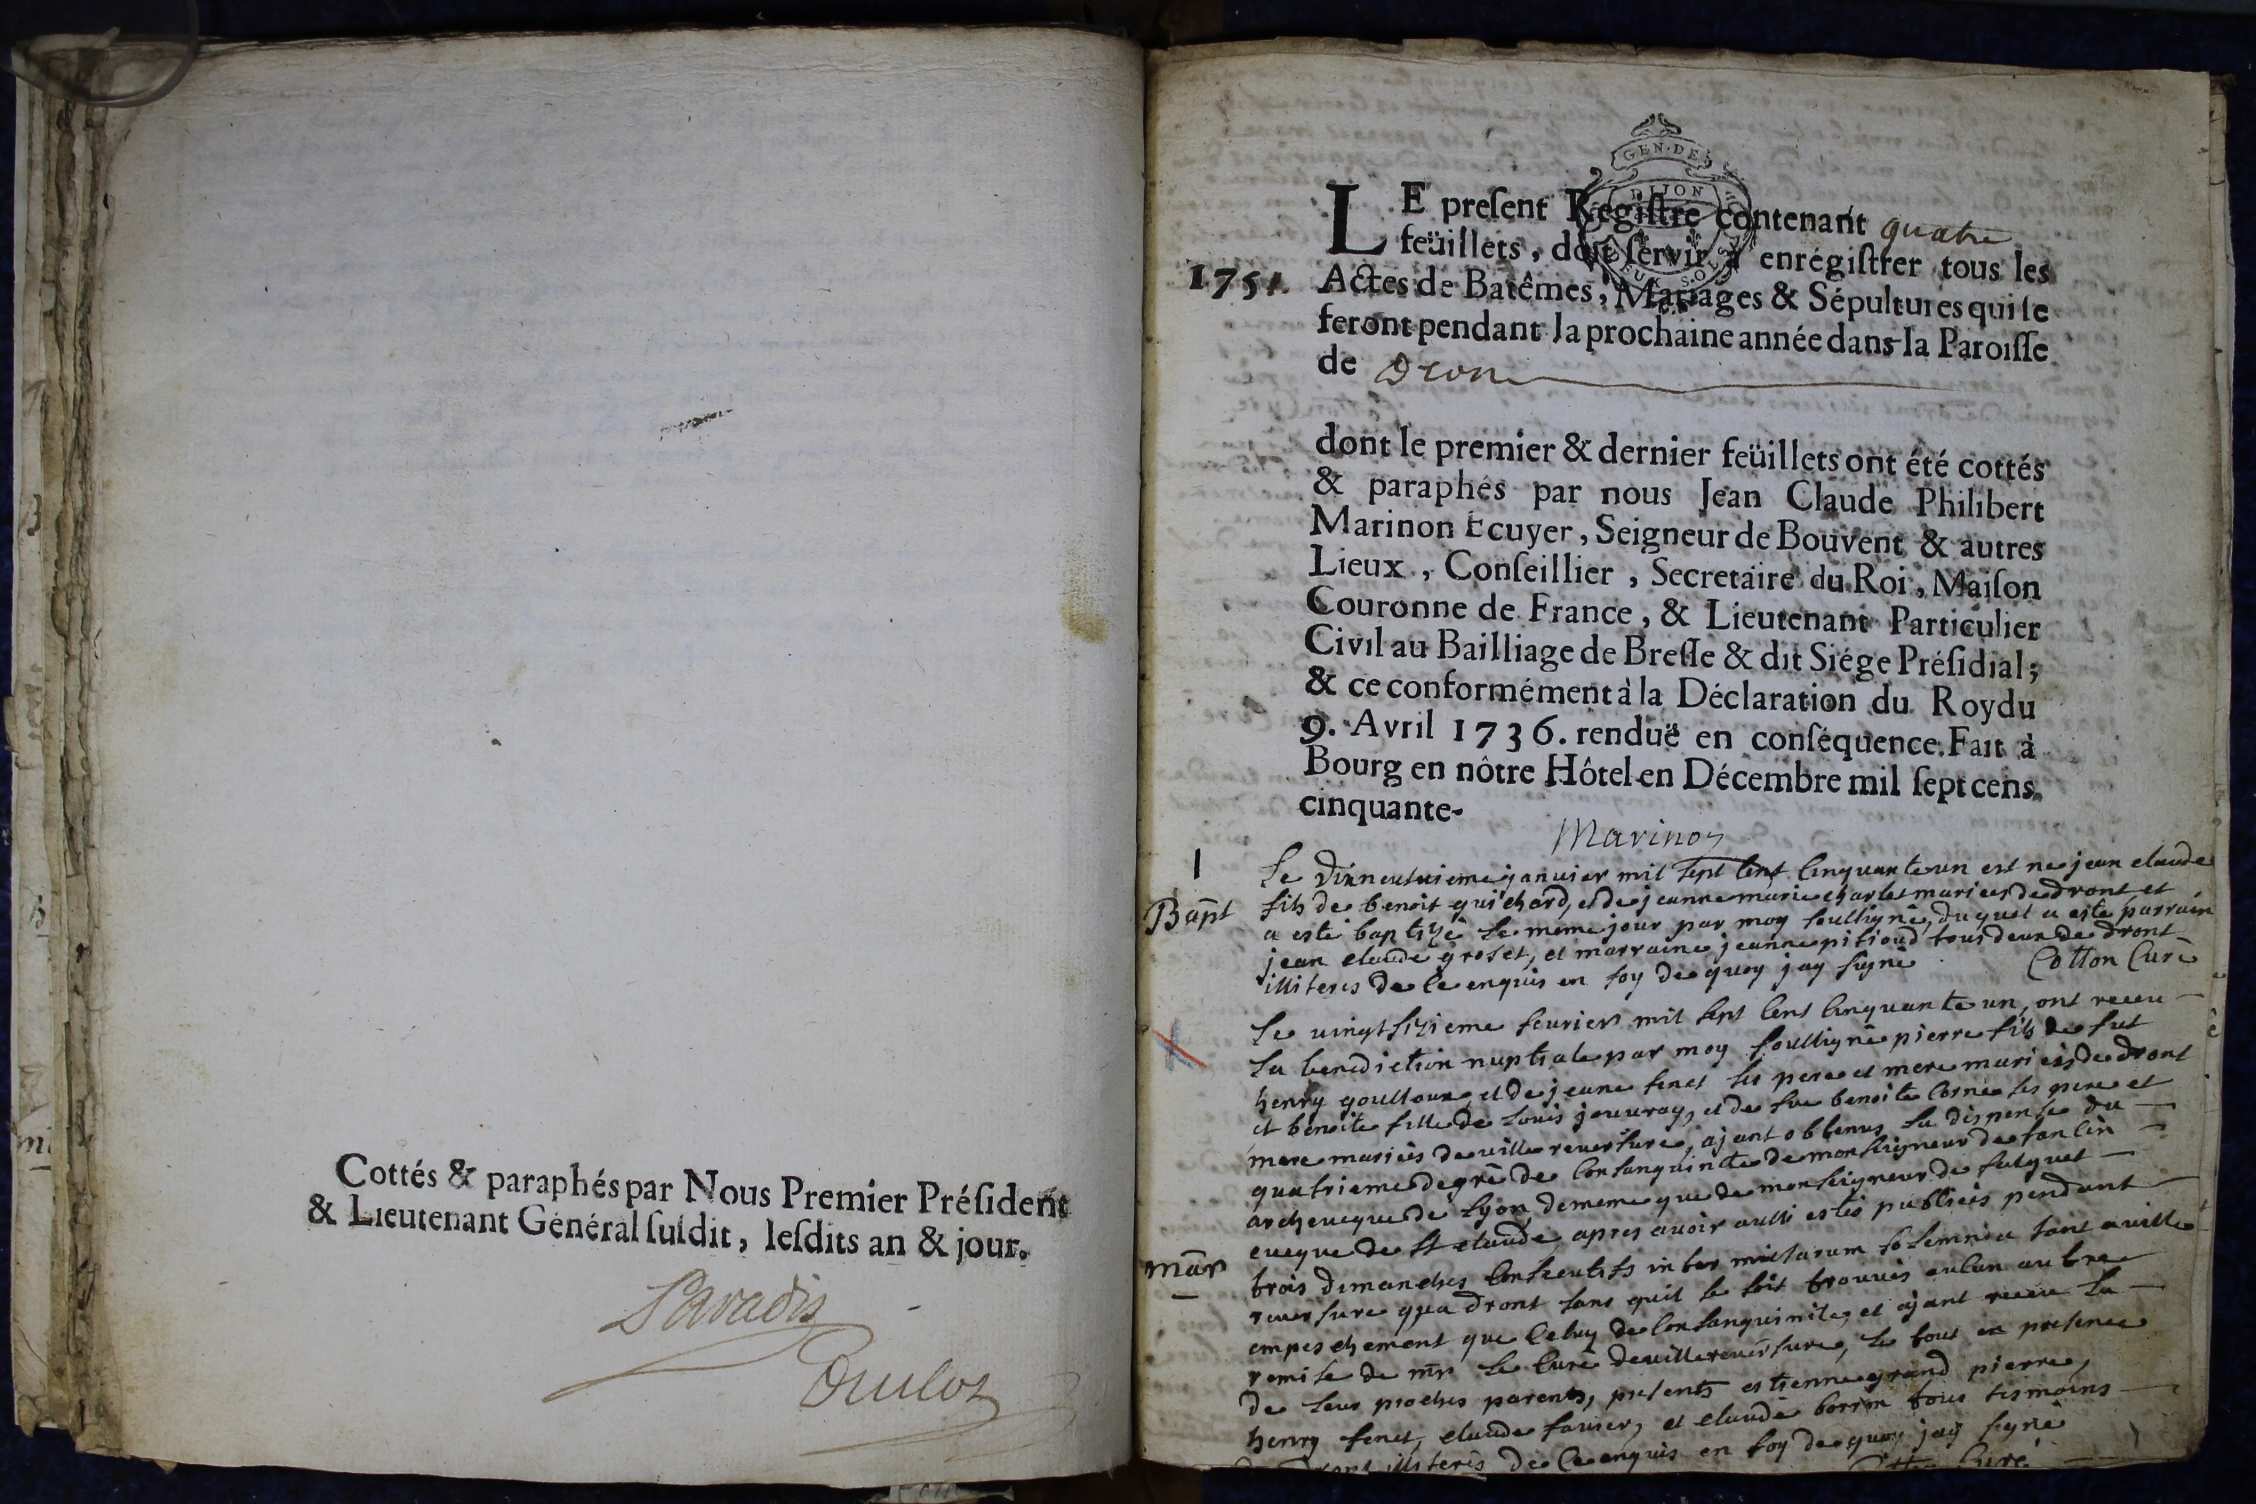 Cottés & paraphés par Nous Premier Préſident
& Lieutenant Général ſuſdit, leſdits an & jour.
Paradis
Duclos
GEN. DE
DIJON
LE preſent Regiſtre contenant quatre
feüillets, doit ſervir à enrégiſtrer tous les
1751.
Actes de Batêmes, Mariages & Sépultures qui ſe
feront pendant la prochaine année dans la Paroiſſe
de Dron
dont le premier & dernier feüillets ont été cottés
& paraphés par nous Jean Claude Philibert
Marinon Ecuyer, Seigneur de Bouvent & autres
Lieux, Conſeillier, Secretaire du Roi, Maiſon
Couronne de France, & Lieutenant Particulier
Civil au Bailliage de Breſſe & dit Siége Préſidial;
& ce conformément à la Déclaration du Roy du
9. Avril 1736. renduë en conſéquence. Fait à
Bourg en nôtre Hôtel en Décembre mil ſept cens
cinquante-
Marinon
1
Bapt
Le dixneuvieme janvier mil sept cent cinquante un est ne jean claude
fils de benoit guichard, et de jeanne marie charlet maries de dront et
a esté baptizé le meme jour par moy soussigné, duquel a esté parrain
jean claude groset, et marraine jeanne pitioud tous deux de dront
illiteres de ce enquis en foy de quoy jay signé Cotton Curé
Le vingt sizieme fevrier mil sept cent cinquante un, ont receu
la benediction nuptiale par moy soussigné pierre fils de fut
henry goulloux, et de jeane fenet ses pere et mere mariés de dront
et benoite fille de Louis jouvray, et de fue benoite Corne ses pere et
mere mariés de ville reversure, ajant obtenus la dispense du
quatrieme degré de Consanguinité de monseigneur de tancin
archeveque de Lyon, de meme que de monseigneur de
eveque de St claude, apres avoir aussi estés publiés pendant
mar
trois dimanches Consecutifs inter missarum solemnia tant a ville
reversure qua dront sans quil se soit trouvés aucun autre
empeschement que celuy de Consanguinite, et ajant receu la
remise de mr le Curé de villereversure, le tout en presence
de leur proches parents, presents estienne grand pierre,
henry fenet, claude favier, et claude borron tous tesmoins
illiterés de ce enquis en foy de quoy jay signé
Curé